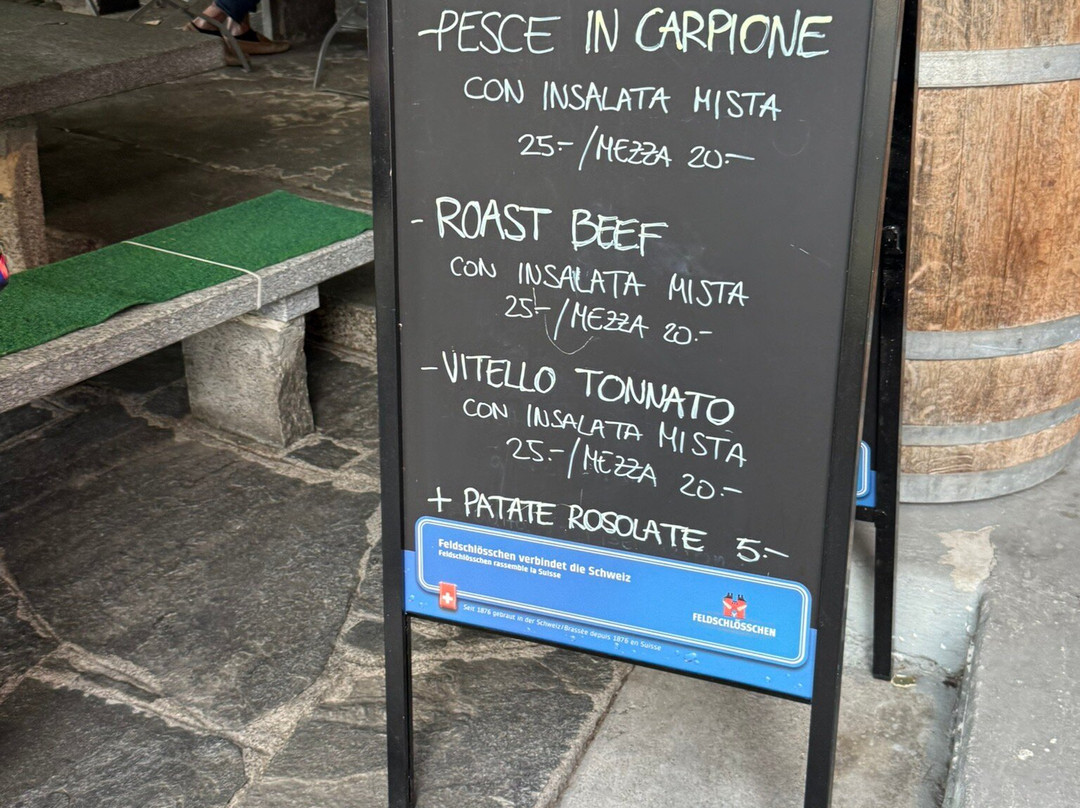 -PESCE IN CARPIONE
CON INSALATA MISTA
25.-/MEZZA 20.-
-ROAST BEEF
CON INSALATA MISTA
25.-/MEZZA 20.-
-VITELLO TONNATO
CON INSALATA MISTA
25.-/MEZZA 20.-
+ PATATE ROSOLATE 5.-
Feldschlösschen verbindet die Schweiz
Feldschlösschen rassemble la Suisse
FELDSCHLÖSSCHEN
Seit 1876 gebraut in der Schweiz/Brassée depuis 1876 en Suisse